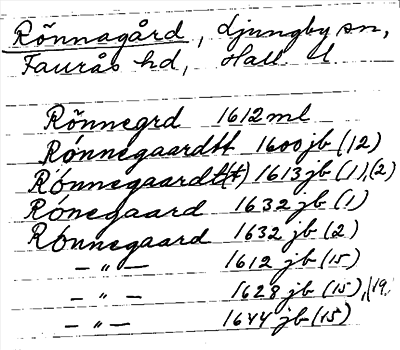 Rönnagård, Ljungby sn,
Faurås hd, Hall. l.
Rönnegrd 1612 ml
Rónnegaardtt 1600 jb (12)
Rónnegaardt(t) 1613 jb (1), (2)
Rónegaard 1632 jb (1)
Rónnegaard 1632 jb (2)
— " — 1612 jb (15)
— " — 1628 jb (15), (19
— " — 1644 jb (15)